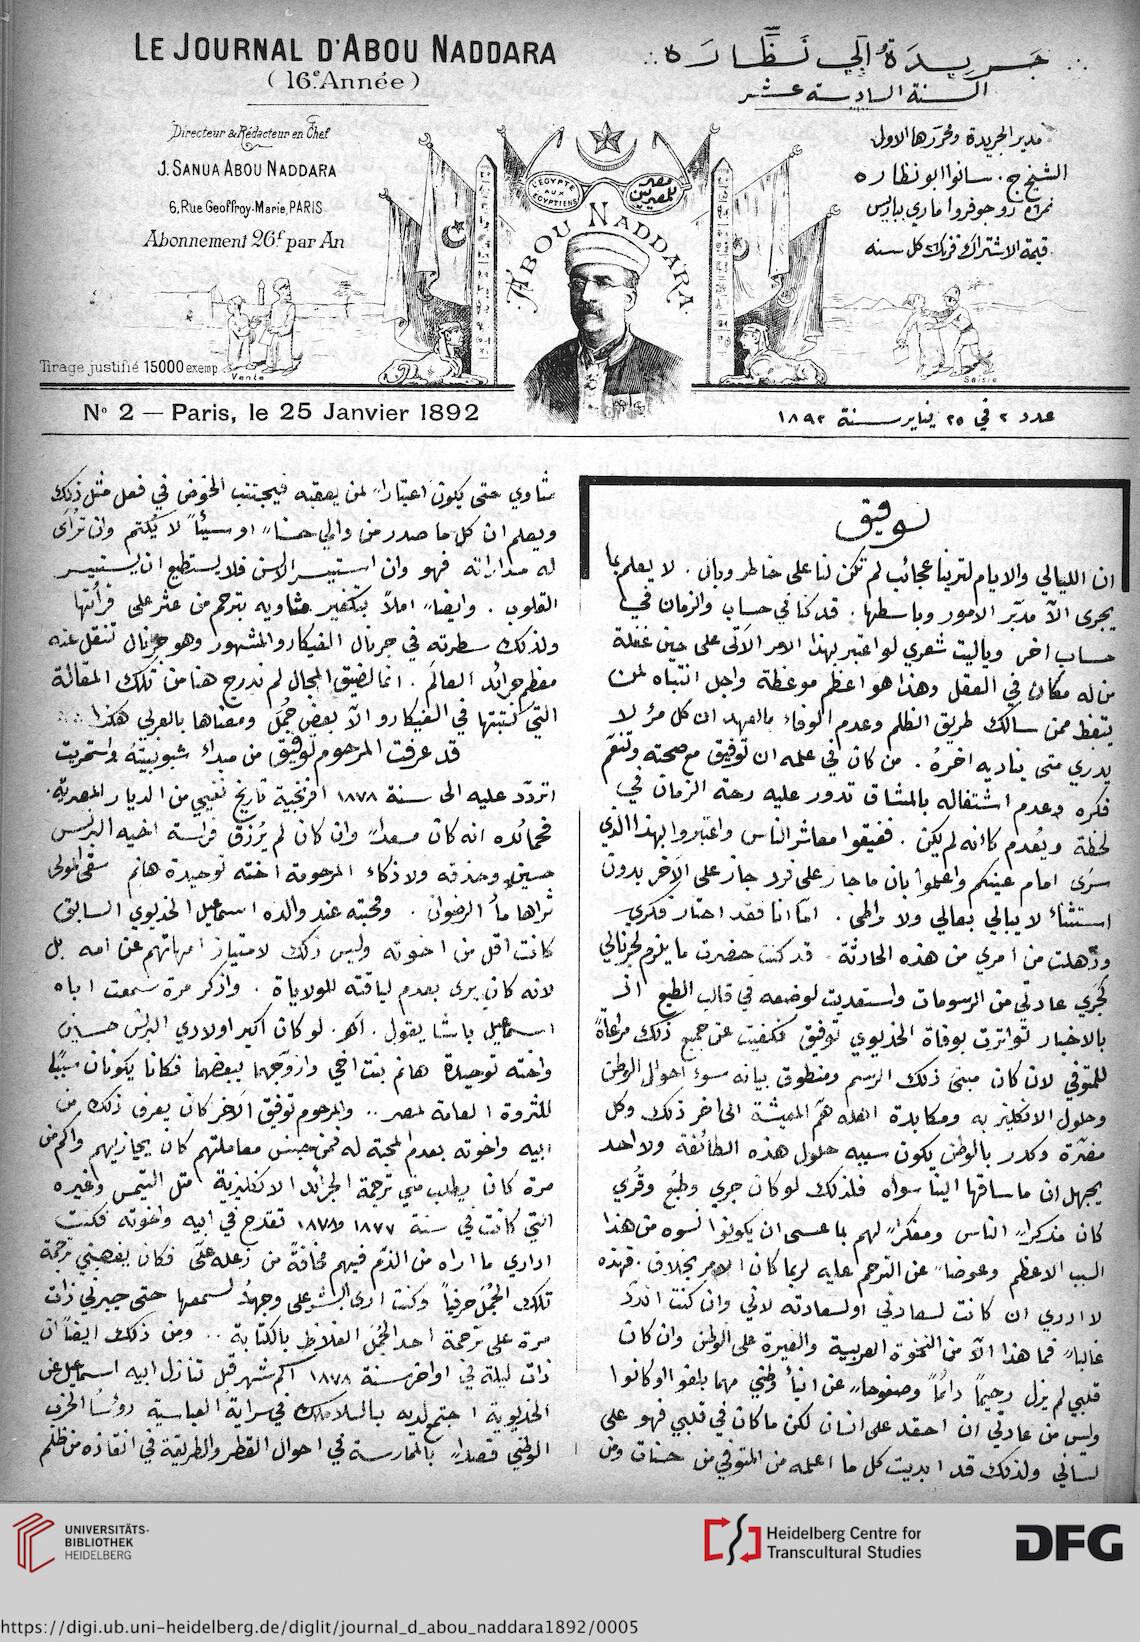 LE JOURNAL D'ABOU NADDARA
(16e. Année)
Directeur & Rédacteur en Chef
J. SANUA ABOU NADDARA
6, Rue Geoffroy-Marie, PARIS
Abonnement 26f par An
Tirage justifié 15000 exemp.
Vente
L'EGYPTE AUX EGYPTIENS
مصر للمصريين
ABOU NADDARA
جَرِيدَةُ أَبِي نَظَّارَه
السنة السادسة عشر
مدير الجريدة ومحررها الاول
الشيخ ج. سانوا ابو نظاره
نمرة ٦ رو جوفروا ماري بباريس
قيمة الاشتراك فرنك ٢٦ كل سنه
Saisie
No 2 — Paris, le 25 Janvier 1892
عدد ٢ في ٢٥ يناير سنة ١٨٩٢
توفيق
ان الليالي والايام لترينا عجائب لم تكن لنا على خاطر وبال . لا يعلم بما
يجرى الّا مدبّر الامور وباسطها . قد كنا في حساب والزمان في
حساب اخر وياليت شعري لو اعتبر بهذا الامر الآتى على حين غفلة
من له مكان في العقل وهذا هو اعظم موعظة واجل انتباه لمن
يتعظ ممن سالك طريق الظلم وعدم الوفاء بالعهد ان كل مرء لا
يدري متى يناديه اخرهُ . من كان في علمه ان توفيق مع صحته وتنعّم
فكره وعدم اشتغاله بالمشاق تدور عليه رحة الزمان في
لحظة ويُعدم كأنه لم يكن . ففيقوا معاشر الناس واعتبروا بهذا الذي
سرَى امام عينكم واعلموا بان ما جاز على فرد جاز على الآخر بدون
استثناء لا يبالي بعالي ولا واطي . امّا انا فقد احتار فكري
وذهلت من امري من هذه الحادثة . قد كنت حضرت ما يلزم لجرنالي
كجَري عادتي من الرسومات واستعديت لوضعه في قالب الطبع اذ
بالاخبار تواترت بوفاة الخديوي توفيق فكفيت عن جميع ذلك مراعاةً
للمتوفي لان كان مبنى ذلك الرسم ومنطوق بيانه سوء احوال الوطن
وحلول الانكليز به ومكابدة اهله همّ المعيشة الى اخر ذلك وكل
مضرّة وكدر بالوطن يكون سببه حلول هذه الطائفة ولا احد
يجهل ان ما ساقها الينا سواه فلذلك لو كان جري وطُبع وقُري
كان مذكراً الناس ومفكراً لهم با عسى ان يكونوا نسوه من هذا
السبب الاعظم وعوضاً عن الترحم عليه لربما كان الامر بخلاف . فهذه
لا ادري ان كانت لسعادتي او لسعادته لاني وان كنت اندّد
غالباً فما هذا الّا من النخوة العربية والغيرة على الوطن وان كان
قلبي لم يزل رحيماً دائماً وصفوحاً عن ابناء وطني مهما بلغوا او كانوا
وليس من عادتي ان احقد على انسان لكن ما كان في قلبي فهو على
لساني ولذلك قد ابديت كل ما اعلمه من المتوفي من حسنات ومن
مساوي حتى يكون اعتباراً لمن يعقبه فيجتنب الخوض في فعل مثل ذلك
ويعلم ان كل ما صدر من والي حسناً او سيئاً لا يُكتم وان ترآى
له مداراته فهو وان استيسر الالسن فلا يستطيع ان يستيسر
القلوب . وايضاً املاً بتكفير مساويه بترحم من عثر على قرأتها
ولذلك سطرته في جرنال الفيكارو المشهور وهو جرنال تنقل عنه
معظم جرائد العالم . انما لضيق المجال لم ندرج هنا من تلك المقالة
التي كتبتها في الفيكارو الّا بعض جُمل ومعناها بالعربي هكذا
قد عرفت المرحوم توفيق من مبداء شبوبيته واستمريت
اتردّد عليه الى سنة ١٨٧٨ افرنجية تاريخ نفيي من الديار المصرية.
فحمائده انه كان مسعداً وان كان لم يُرزق فراسة اخيه البرنس
حسين وحذقه ولا ذكاء المرحومة اخته توحيدة هانم سقى المولى
ثراها ماء الرضوان . ومحبته عند والده اسماعيل الخديوي السابق
كانت اقل من اخوته وليس ذلك لامتياز امهاتهم عن امه بل
لانه كان يرى بعدم لياقته للولاياة . واذكر مرة سمعت اباه
اسماعيل باشا يقول . اه لو كان اكبر اولادي البرنس حسين
واخته توحيدة هانم بنت اخي وازوّجهما ببعضهما فكانا يكونان سبباً
للثروة العامة لمصر .. والمرحوم توفيق الآخر كان يعرف ذلك من
ابيه واخوته بعدم المحبة له فمن جنس معاملتهم كان يجازيهم واكم من
مرة كان يطلب مني ترجمة الجرائد الانكليزية مثل التيمس وغيره
التي كانت في سنة ١٨٧٧ و١٨٧٨ تقدح في ابيه واخوته فكنت
اداري ما اراه من الذم فيهم مخافةً من زعله عليَّ فكان يغصبني ترجمة
تلك الجُمل حرفياً وكنت ارى البشر على وجههُ لسمعها حتى جبرني ذات
مرة على ترجمة احد الجُمَل الغلاظ بالكتابة .. ومن ذلك ايضاً ان
ذات ليلة في اواخر سنة ١٨٧٨ اكم شهر قبل تنازل ابيه اسماعيل عن
الخديوية اجتمع لديه بالسلاملك في سراية العباسية رؤسُا الحزب
الوطني قصداً بالممارسة في احوال القطر والطريقة في انقاذه من ظلم
UNIVERSITÄTS-
BIBLIOTHEK
HEIDELBERG
Heidelberg Centre for
Transcultural Studies
DFG
https://digi.ub.uni-heidelberg.de/diglit/journal_d_abou_naddara1892/0005